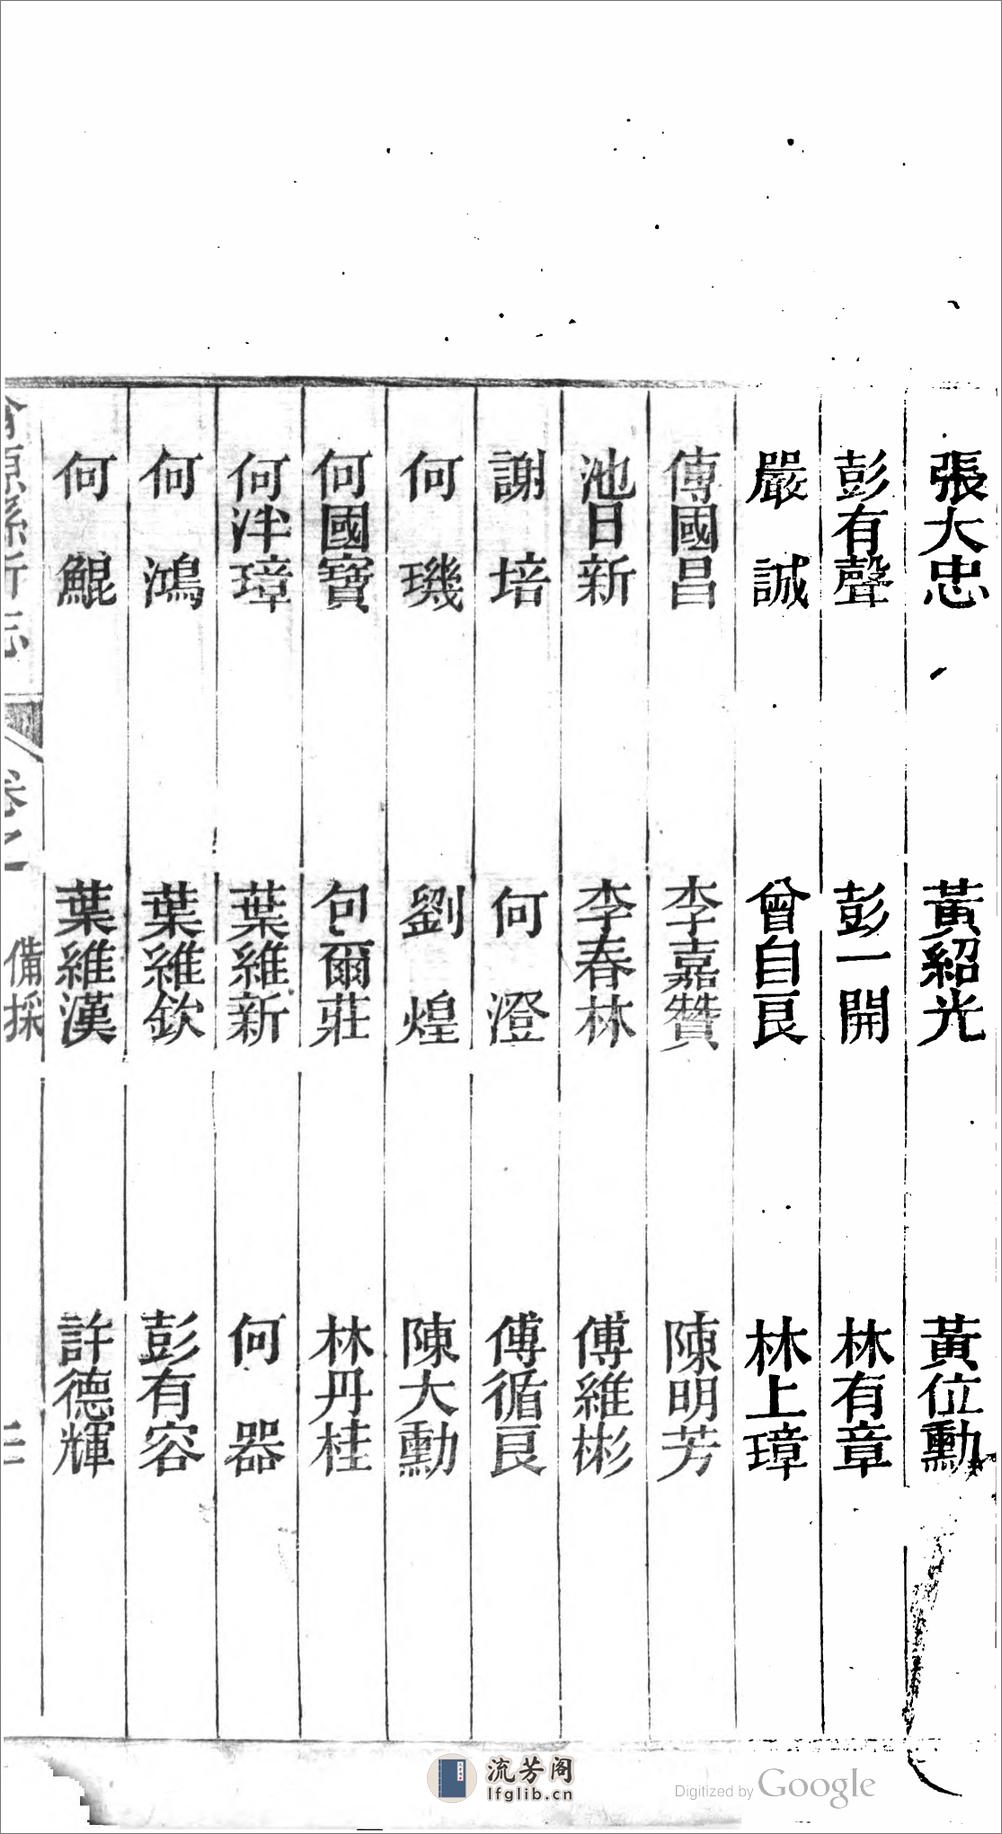 張大忠　黃紹光　黃位勳
彭有聲　彭一開　林有章
嚴誠　曾自良　林上璋
傅國昌　李嘉贊　陳明芳
池日新　李春林　傅維彬
謝培　何澄　傅循良
何璣　劉煌　陳大勳
何國寶　包爾莊　林丹桂
何泮璋　葉維新　何器
何鴻　葉維欽　彭有容
何鯤　葉維漢　許德輝
縣新志　卷之　備採
流芳阁
lfglib.cn
Digitized by Google